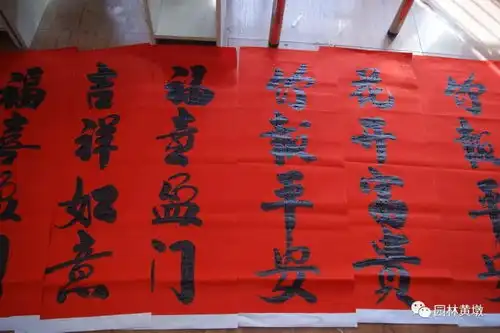 竹報平
花开富贵
竹報平安
福喜盈门
吉祥如意
福喜盈门
园林黄墩